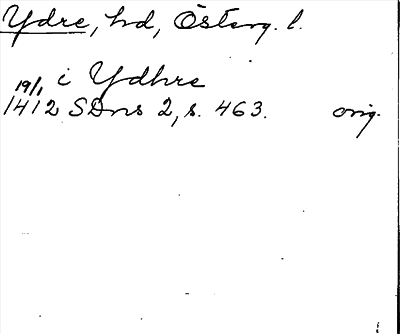 Ydre, hd, Österg. l.
i Ydhre
19/1 1412 SDns 2, s. 463. orig.